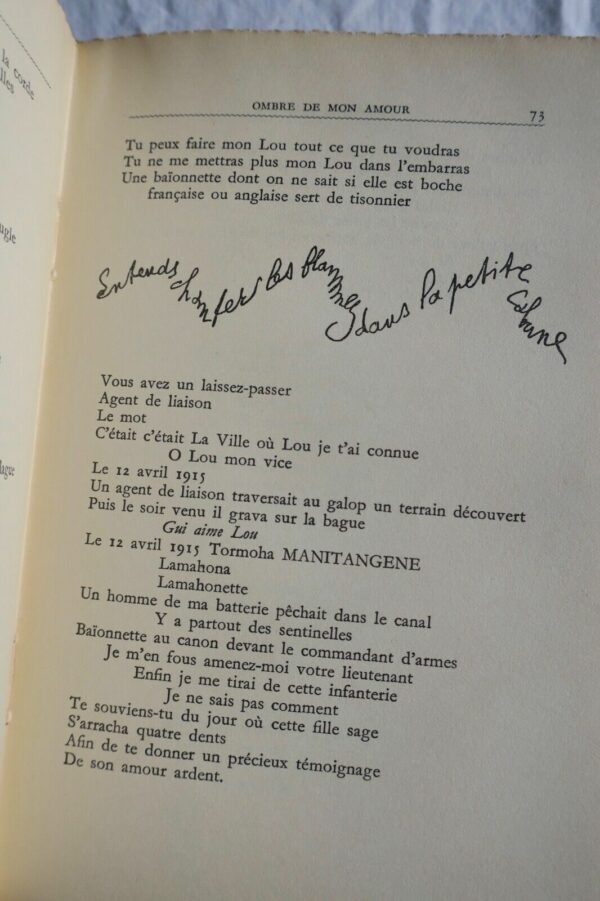 la corde
lles
ugle
lague
OMBRE DE MON AMOUR 73
Tu peux faire mon Lou tout ce que tu voudras
Tu ne me mettras plus mon Lou dans l'embarras
Une baïonnette dont on ne sait si elle est boche
française ou anglaise sert de tisonnier
Entends chanter les flammes dans la petite cabane
Vous avez un laissez-passer
Agent de liaison
Le mot
C'était c'était La Ville où Lou je t'ai connue
O Lou mon vice
Le 12 avril 1915
Un agent de liaison traversait au galop un terrain découvert
Puis le soir venu il grava sur la bague
Gui aime Lou
Le 12 avril 1915 Tormoha MANITANGENE
Lamahona
Lamahonette
Un homme de ma batterie pêchait dans le canal
Y a partout des sentinelles
Baïonnette au canon devant le commandant d'armes
Je m'en fous amenez-moi votre lieutenant
Enfin je me tirai de cette infanterie
Je ne sais pas comment
Te souviens-tu du jour où cette fille sage
S'arracha quatre dents
Afin de te donner un précieux témoignage
De son amour ardent.